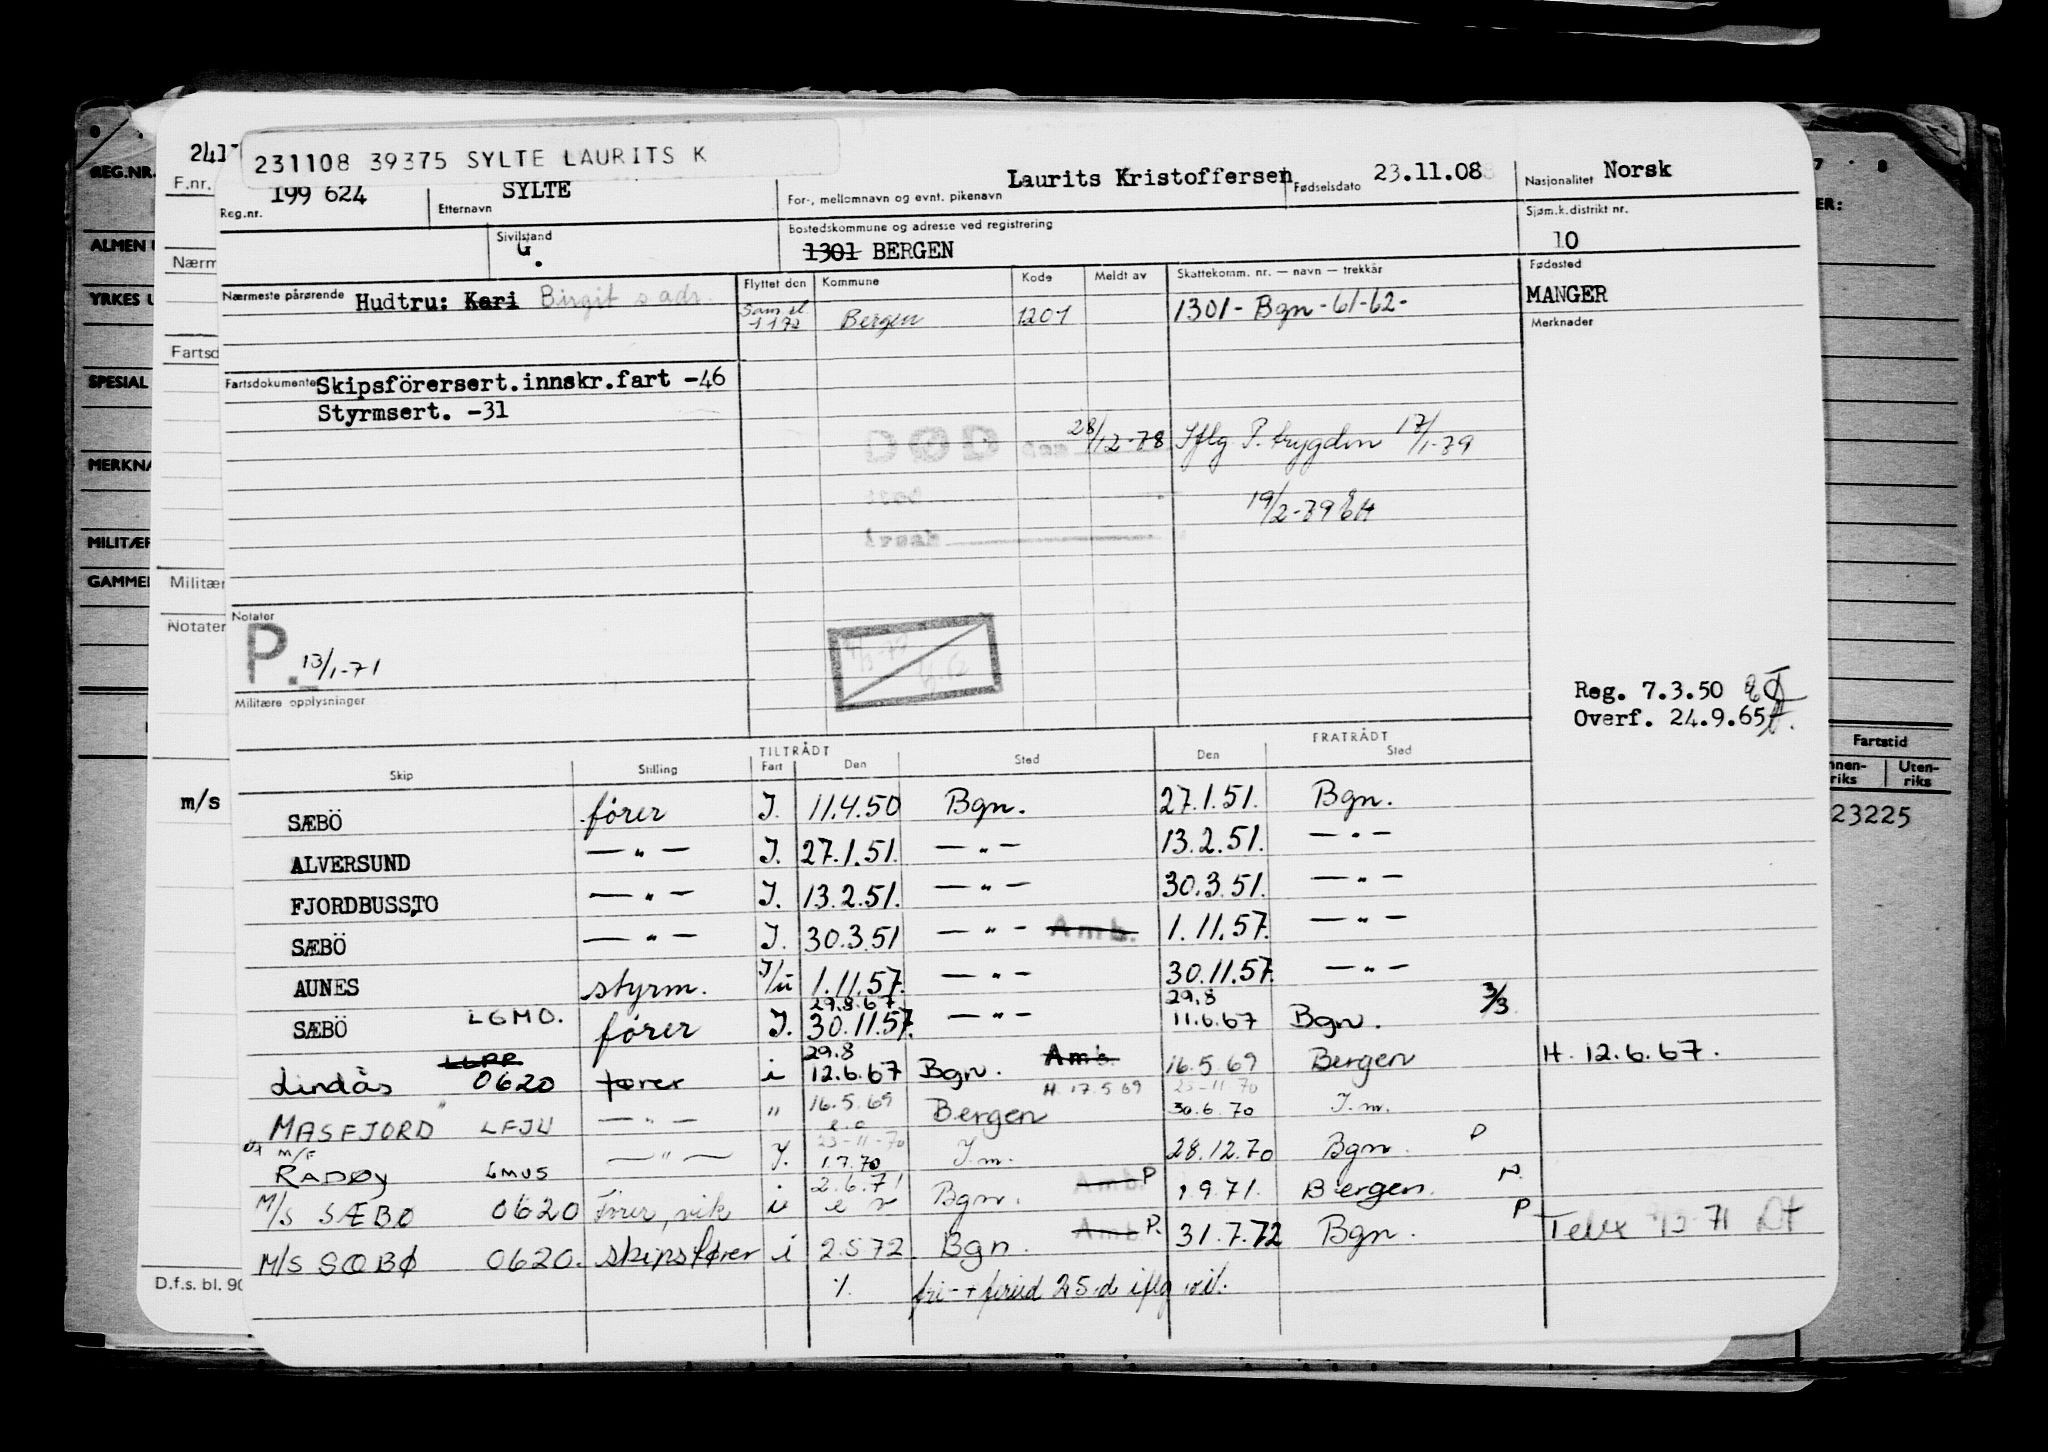 231108 39375 SYLTE LAURITS K
2417
F.nr.
REG.NR.
Reg.nr. 199 624
Etternavn SYLTE
For-, mellomnavn og evnt. pikenavn Laurits Kristoffersen
Fødselsdato 23.11.08
Nasjonalitet Norsk
Sivilstand G.
Bostedskommune og adresse ved registrering
1301 BERGEN
Sjøm.k.distrikt nr.
10
Nærmeste pårørende Hudtru: Kari Birgit s adr.
Flyttet den Kommune Kode Meldt av Skattekomm. nr. — navn — trekkår
Fødested
MANGER
1 1 72 Bergen 1201 1301 - Bgn - 61-62-
Merknader
Fartsdokumenter Skipsförersert.innskr.fart -46
Styrmsert. -31
DØD den 28/12-78 Iflg P. trygden 17/1-79
sted
19/2-79
årsak
Notater
P. 13/1-71
Militære opplysninger
Reg. 7.3.50
Overf. 24.9.65
TILTRÅDT FRATRÅDT
Skip Stilling Fart Den Sted Den Sted
SÆBÖ fører I. 11.4.50 Bgn. 27.1.51. Bgn.
ALVERSUND — „ — I. 27.1.51. — „ — 13.2.51. — „ —
FJORDBUSSTO — „ — I. 13.2.51. — „ — 30.3.51. — „ —
SÆBÖ — „ — I. 30.3.51 — „ — Amb. 1.11.57. — „ —
AUNES styrm. I/u 1.11.57. — „ — 30.11.57. — „ —
29.8.67 29.8
SÆBÖ LGMO. fører I. 30.11.57. — „ — 11.6.67 Bgn. 3/3
29.8
Lindås LLPP 0620 fører i 12.6.67 Bgn. Amb. 16.5.69 Bergen H. 12.6.67.
H. 17.5 69 23-11-70
MASFJORD LFJU — „ — " 16.5.69 Bergen 30.6.70 I.m.
23-11-70
M/F RADØY LMUS — „ — I. 1.7.70 I.m. 28.12.70 Bgn. P
2.6.71
M/S SÆBØ 0620 Fører, vik i Bgn. Amb. P 1.9.71. Bergen.
M/S SÆBØ 0620. skipsfører i 2.5 72 Bgn. Amb P. 31.7.72 Bgn. P Telex
% fri- + feried 25 d iflg
ALMEN
YRKES
SPESIAL
MERKNA
MILITÆR
GAMMEL
Nærm
Fartsd
Militær
Notater
m/s
D.f.s. bl. 90
7 8
ER:
Fartstid
nnen-
riks
Uten-
riks
23225